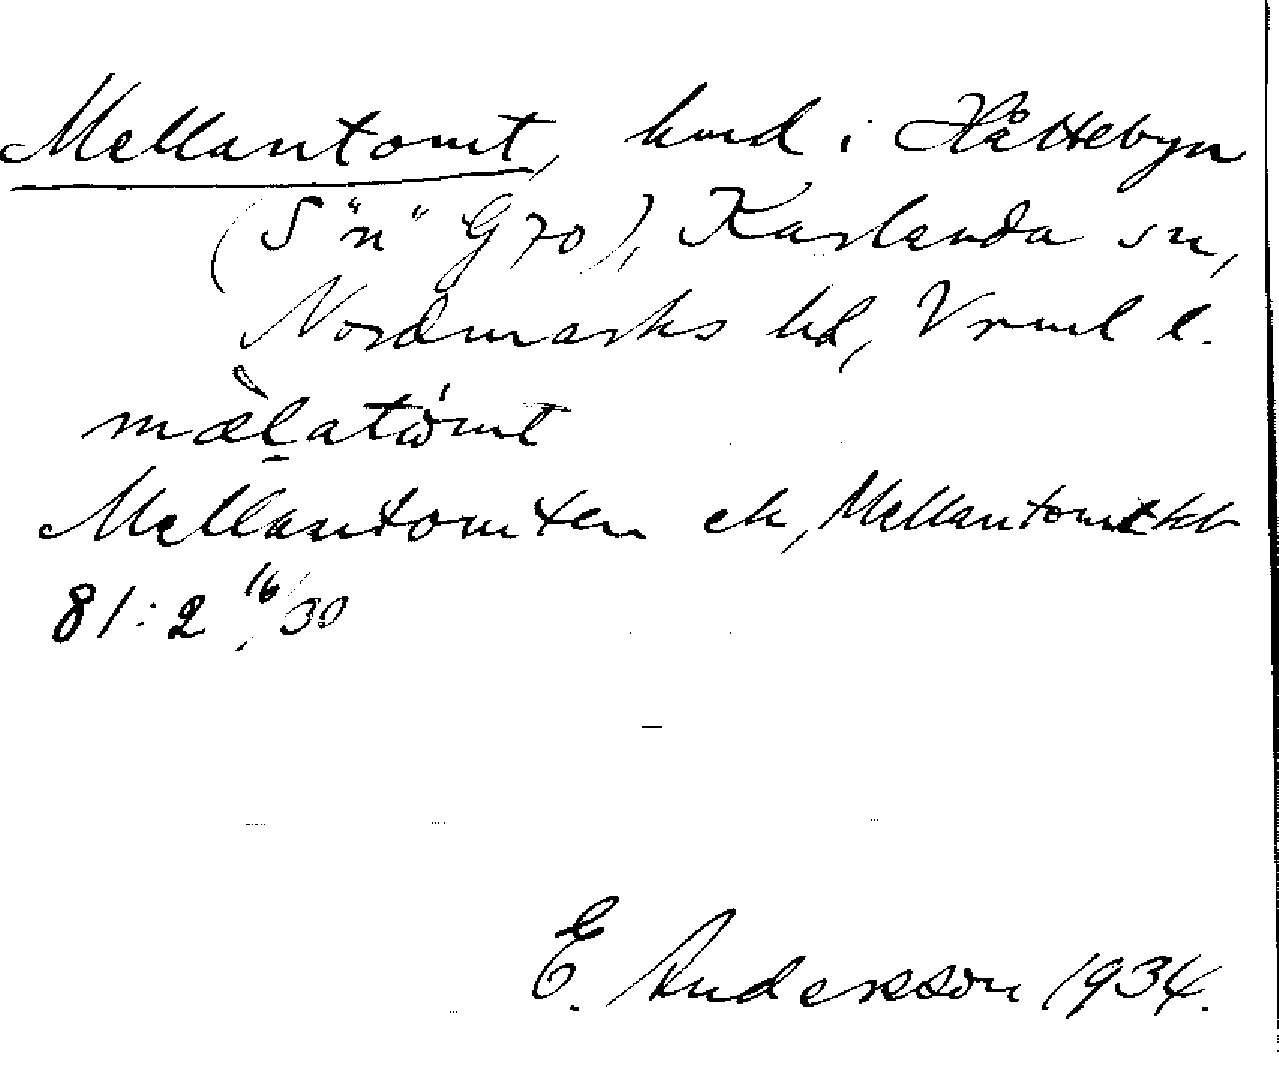 Mellantomt, hmd i Håttebyn
(S "n" G 70), Karlanda sn,
Nordmarks hd, Vrml l.
mæ̀l̠atω̍mt
Mellantomten ek, Mellantomt kb
81:2 16/30
E. Andersson 1934.